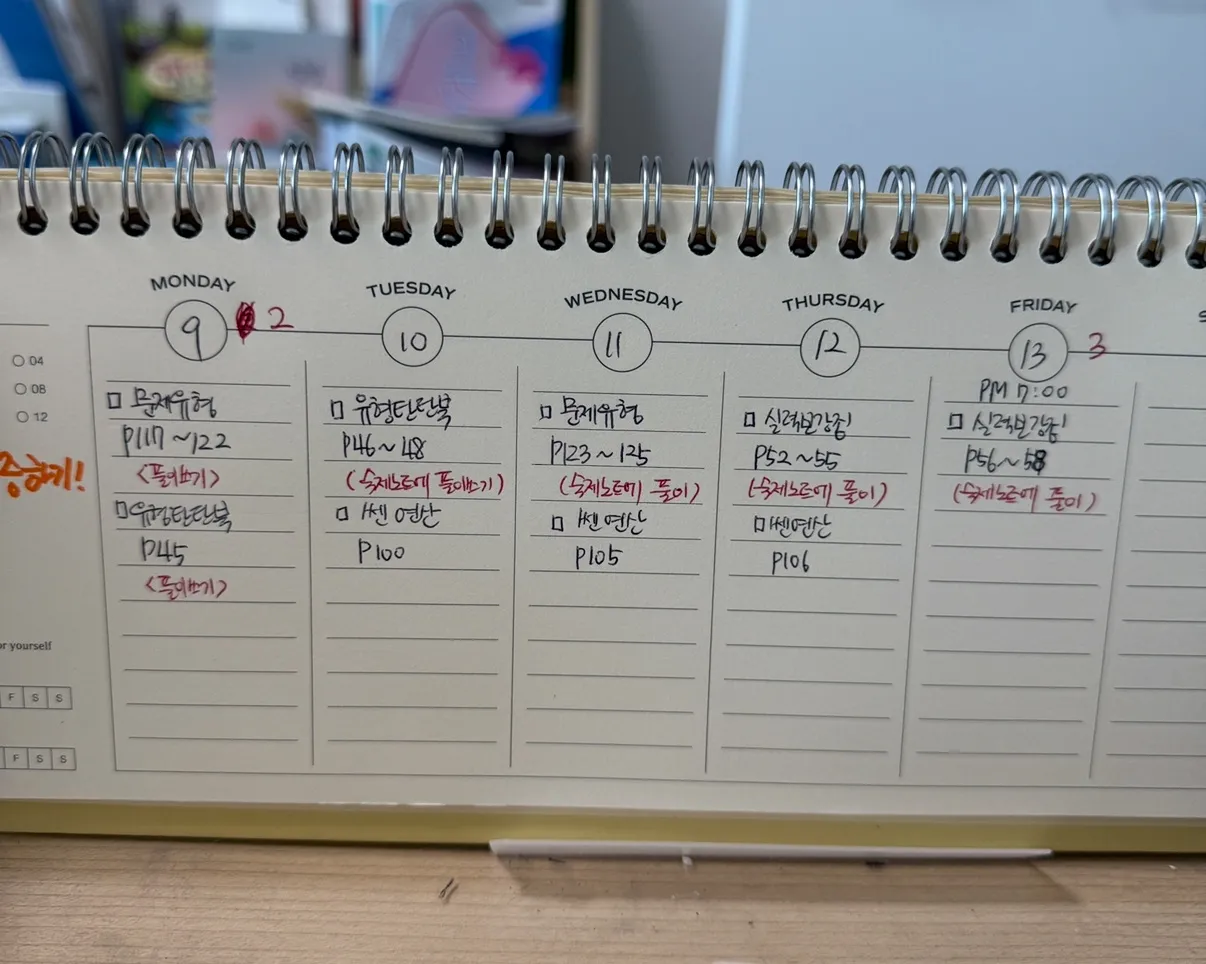 MONDAY
9 2
□ 문제유형
P117~122
<풀이쓰기>
□유형탄탄북
P45
<풀이쓰기>
TUESDAY
10
□ 유형탄탄북
P46~48
(숙제노트에 풀이쓰기)
□ 쎈연산
P100
WEDNESDAY
11
□ 문제유형
P123~125
(숙제노트에 풀이)
□ 쎈연산
P105
THURSDAY
12
□ 실력보강집
P52~55
(숙제노트에 풀이)
□쎈연산
P106
FRIDAY
13 3
PM 7:00
□ 실력보강집
P56~58
(숙제노트에 풀이)
04
08
12
증하기!
or yourself
F S S
F S S
S